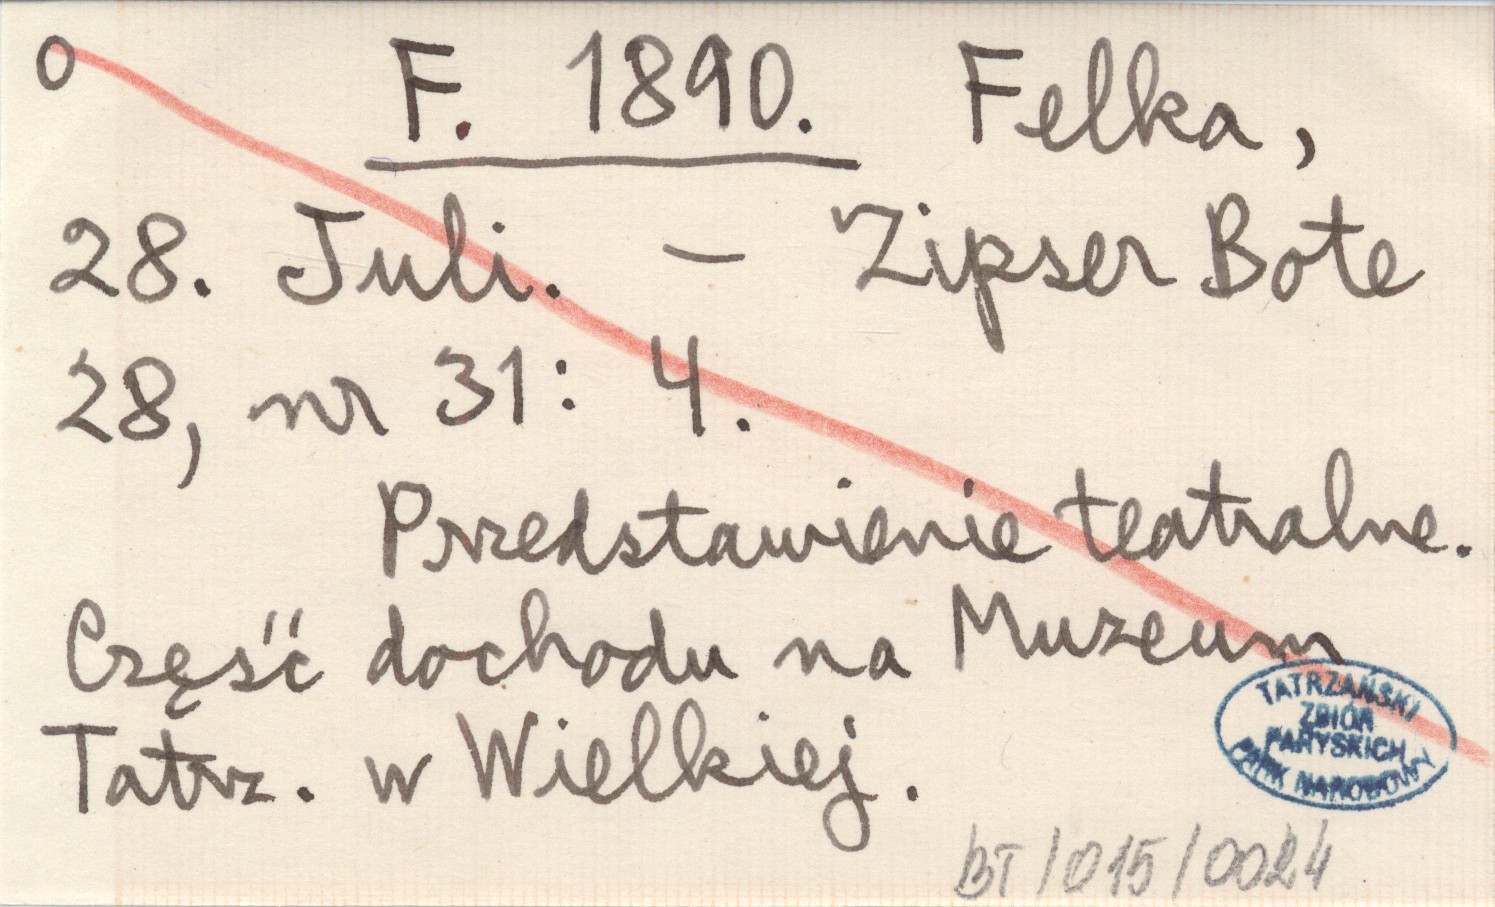 O F. 1890. Felka,
28. Juli. – Zipser Bote
28, nr 31: 4.
Przedstawienie teatralne.
Część dochodu na Muzeum
Tatrz. w Wielkiej.
TATRZAŃSKI
ZBIÓR
PARYSKICH
PARK NARODOWY
BT/015/0024